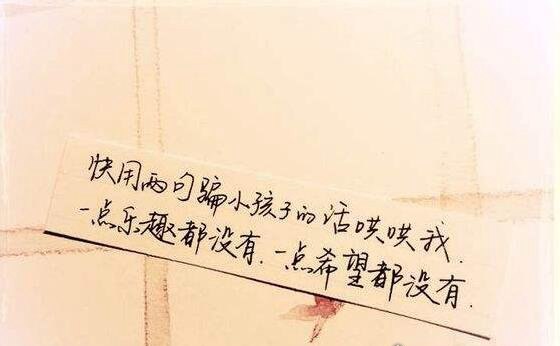 快用两句骗小孩子的话哄哄我.
一点乐趣都没有.一点希望都没有.